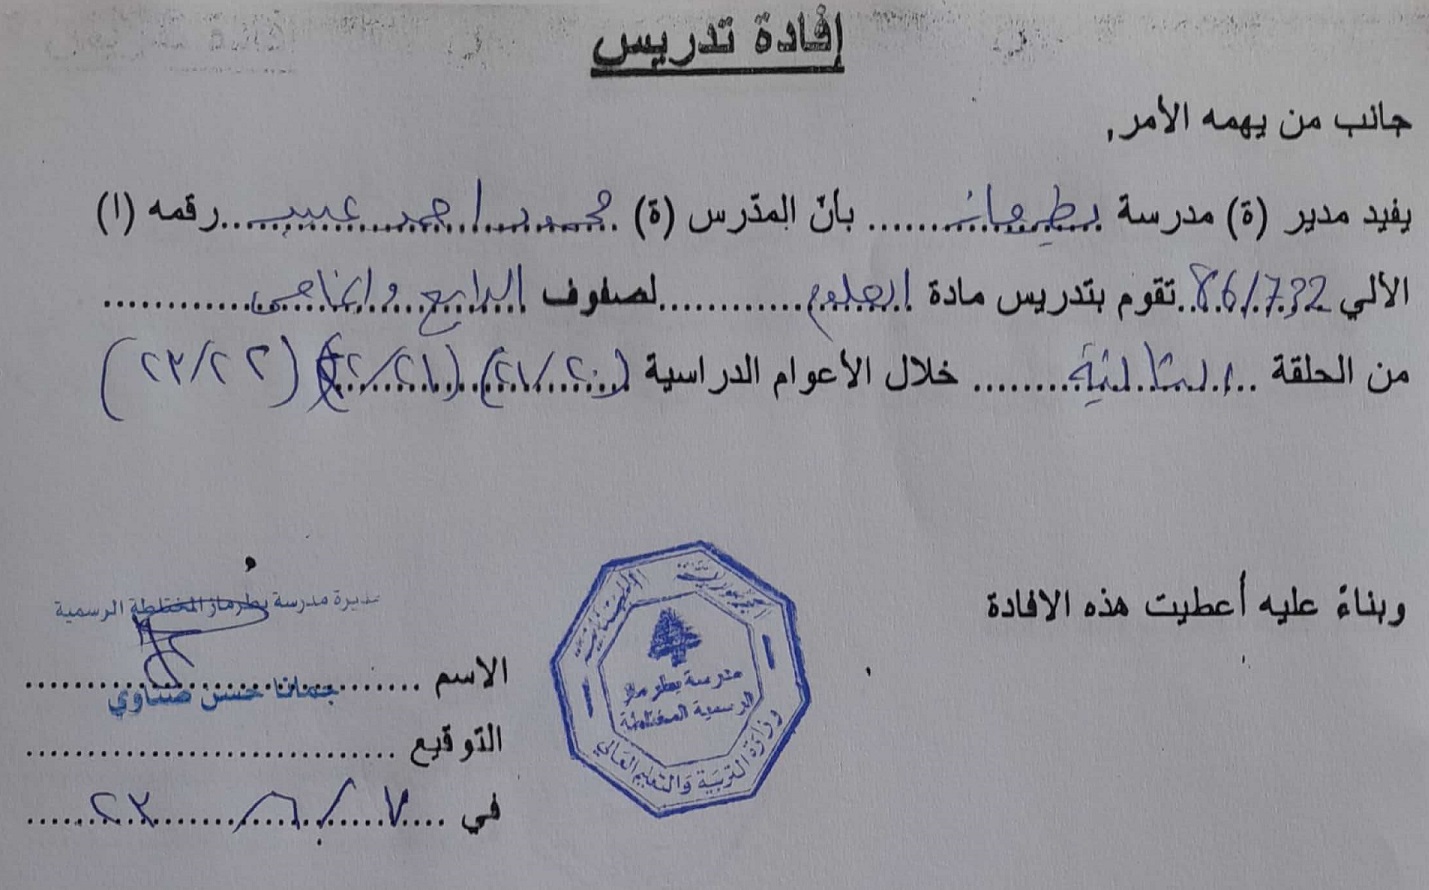 إفادة تدريس
جانب من يهمه الأمر,
يفيد مدير (ة) مدرسة بطرماز ........ بأنّ المدّرس (ة) محمود احمد عبيد .. رقمه (ا)
الآلي 86/732 .. تقوم بتدريس مادة العلوم ............ لصفوف الرابع و الخامس ............
من الحلقة الثانية ........ خلال الأعوام الدراسية (٢١/٢٠) (٢٢/٢١) (٢٣/٢٢)
وبناءً عليه أعطيت هذه الافادة
مديرة مدرسة بطرماز المختلطة الرسمية
الاسم ........
جمانا حسن صناوي
التوقيع ........
في ٧/٨/٢٣
الجمهورية اللبنانية
مدرسة بطرماز
الرسمية المختلطة
وزارة التربية والتعليم العالي